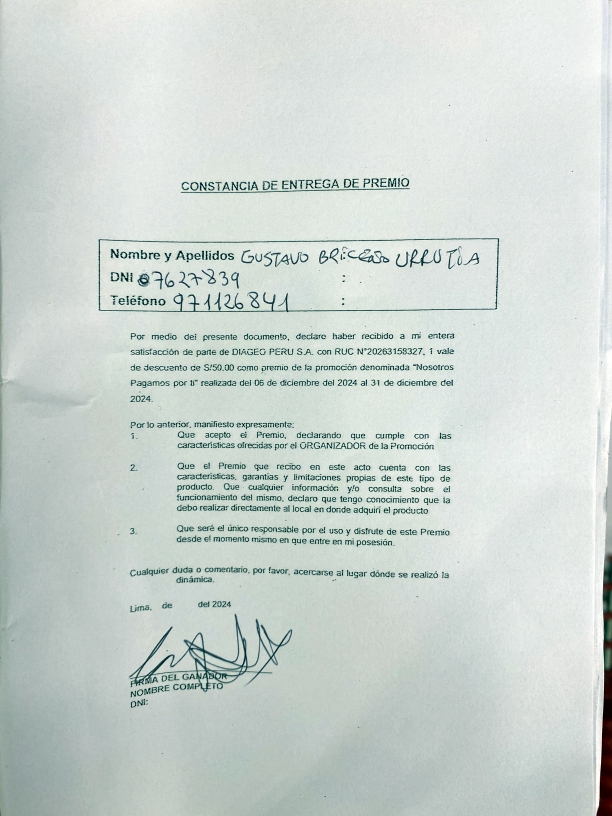 CONSTANCIA DE ENTREGA DE PREMIO
Nombre y Apellidos GUSTAVO BRICEÑO URRUTIA
DNI 07627839 :
Teléfono 971126841 :
Por medio del presente documento, declaro haber recibido a mi entera
satisfacción de parte de DIAGEO PERU S.A. con RUC N°20263158327, 1 vale
de descuento de S/50.00 como premio de la promoción denominada "Nosotros
Pagamos por ti" realizada del 06 de diciembre del 2024 al 31 de diciembre del
2024.
Por lo anterior, manifiesto expresamente:
1. Que acepto el Premio, declarando que cumple con las
características ofrecidas por el ORGANIZADOR de la Promoción
2. Que el Premio que recibo en este acto cuenta con las
características, garantías y limitaciones propias de este tipo de
producto. Que cualquier información y/o consulta sobre el
funcionamiento del mismo, declaro que tengo conocimiento que la
debo realizar directamente al local en donde adquirí el producto
3. Que seré el único responsable por el uso y disfrute de este Premio
desde el momento mismo en que entre en mi posesión.
Cualquier duda o comentario, por favor, acercarse al lugar dónde se realizó la
dinámica.
Lima, de del 2024
FIRMA DEL GANADOR
NOMBRE COMPLETO
DNI: